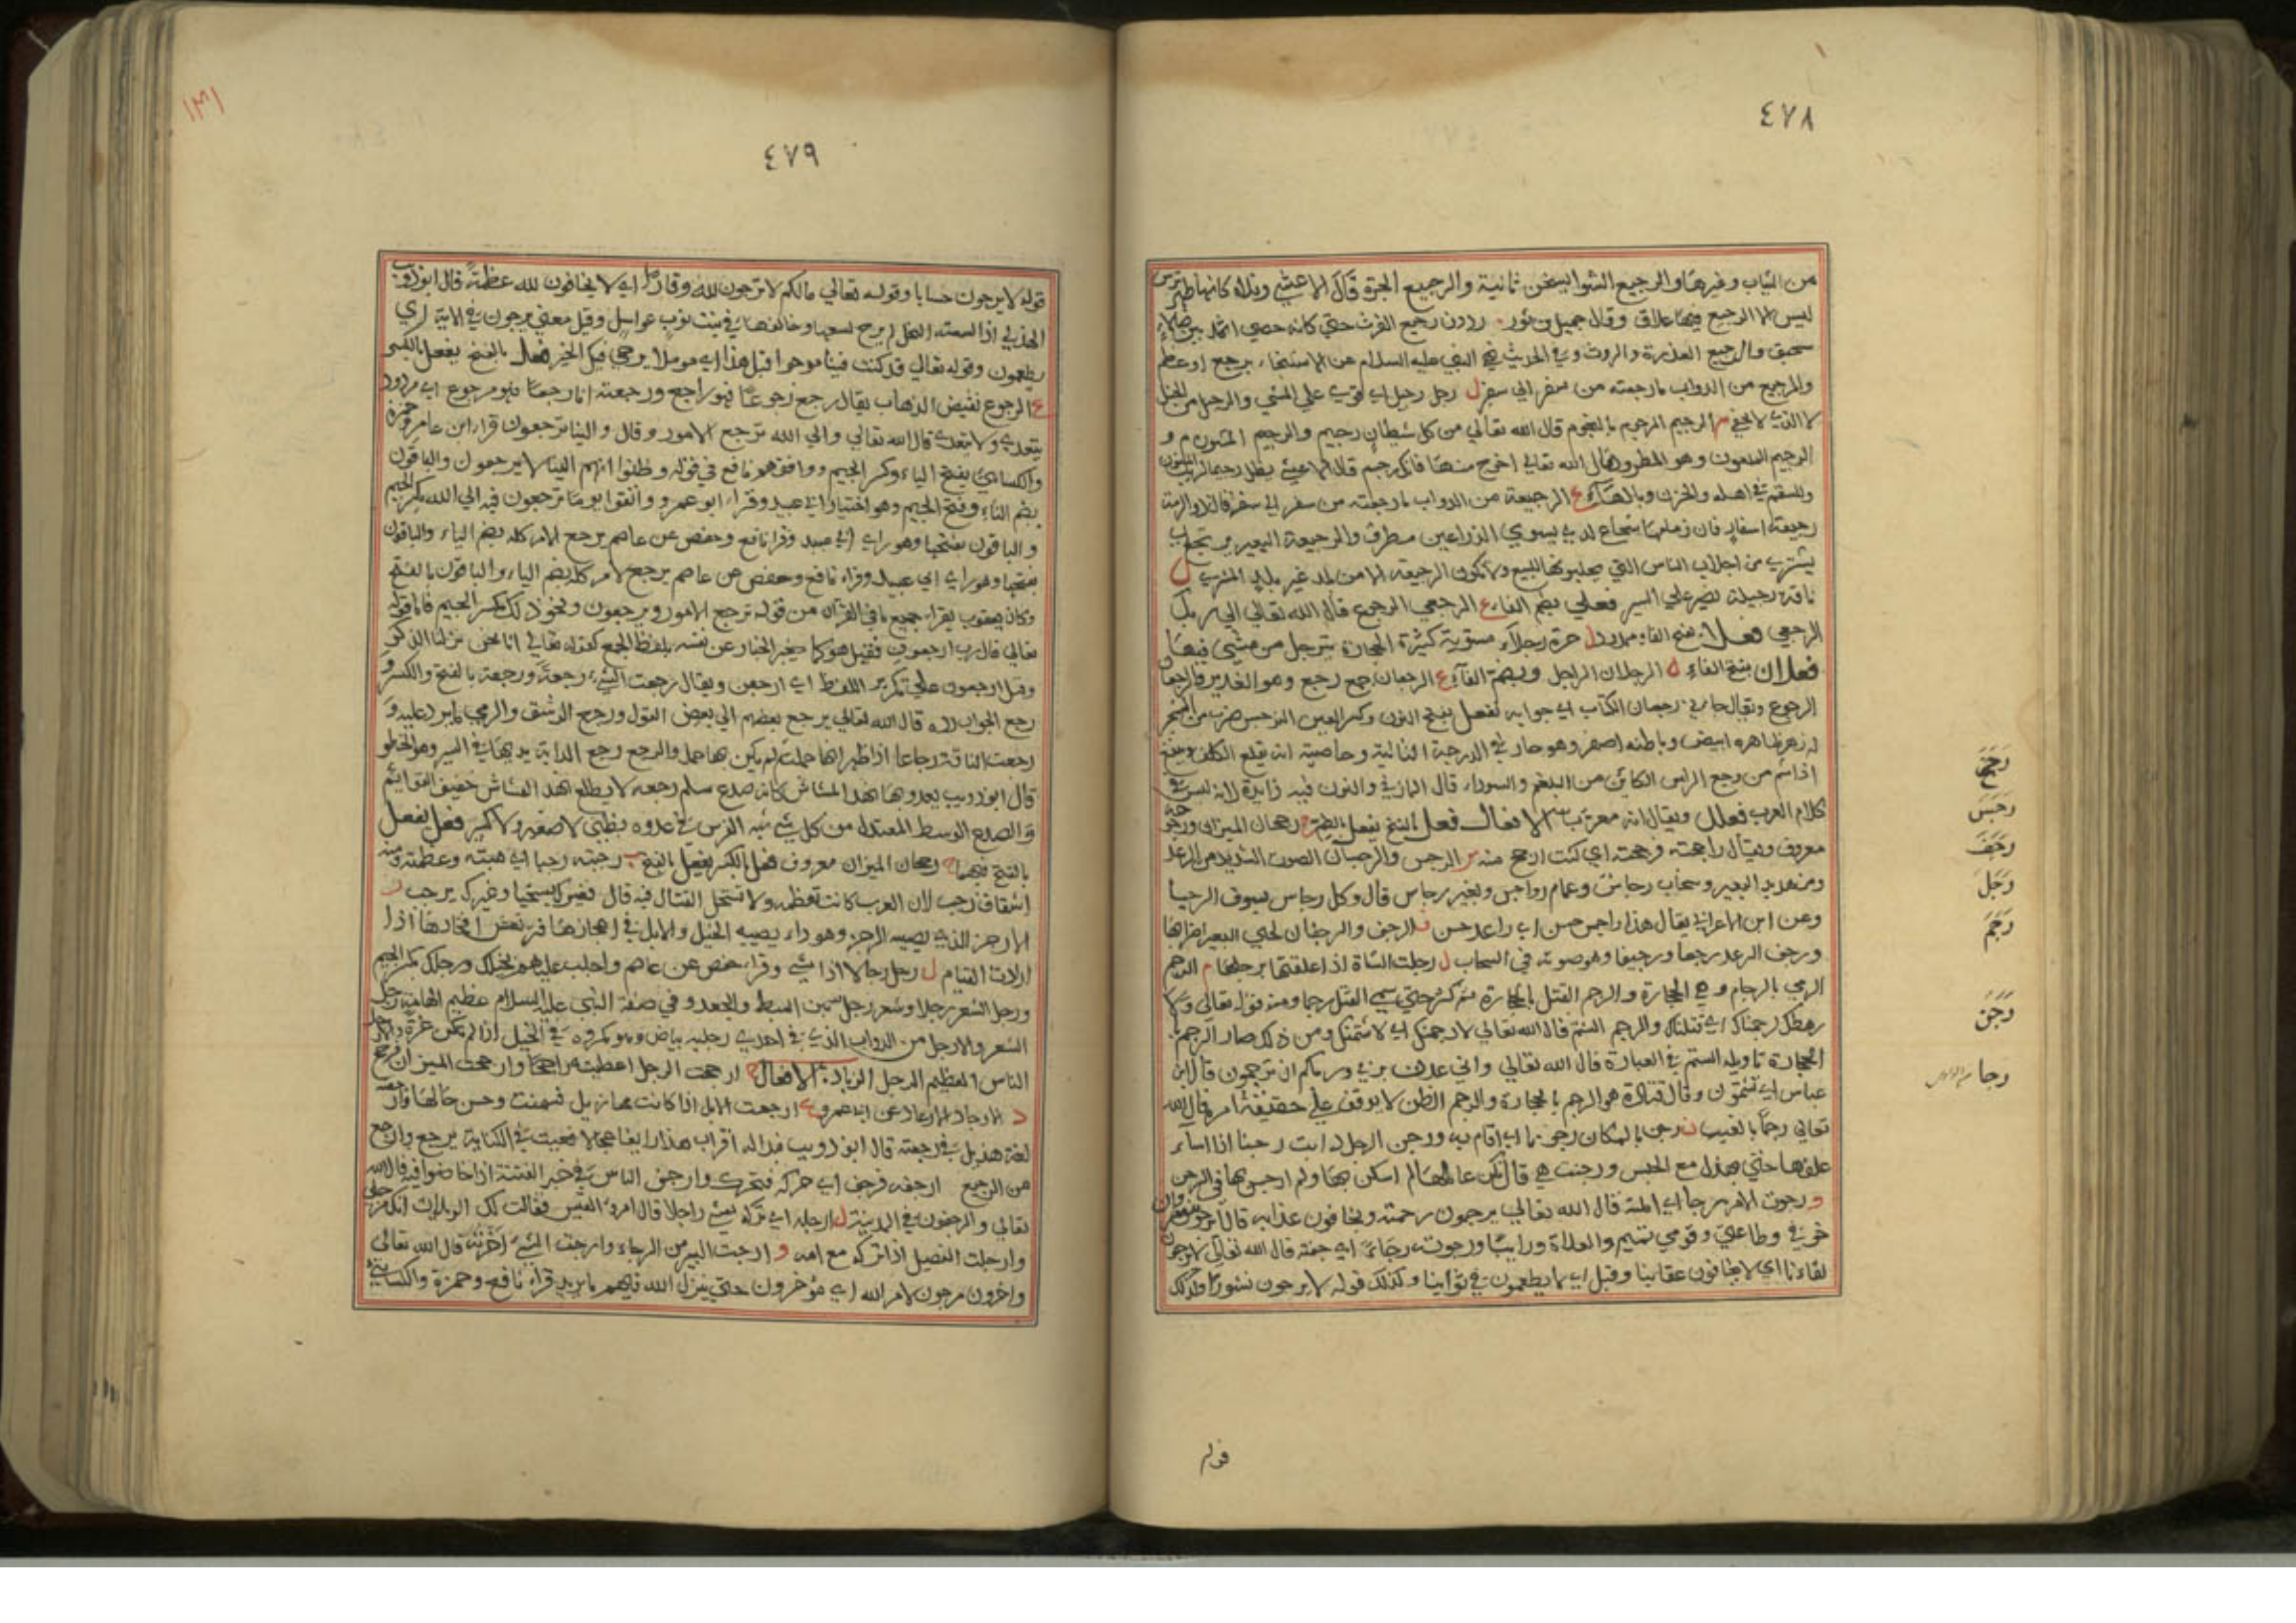 ٤٧٨
من الثياب وغيرها والرجيع الشوا يسخن ثانية والرجيع الجرة قال الاعشى وفلاة كانها ظهر ترس
ليس الا الرجيع فيها علاق وقال جميل بن ثور رددن رجيع الفرث حتى كانه حصى اثمد بين الصلاء
سحيق والرجيع العذرة والروث وفي الحديث نهى النبي عليه السلام عن الاستنجاء برجيع او عظم
والرجيع من الدواب ما رجعته من سفر الى سفر ل رجل رجيل اي قوي على المشي والرجيل من الخيل
لا الذي لا يحفى م الرجيم المرجوم بالنجوم قال الله تعالى من كل شيطان رجيم والرجيم المشوم و
الرجيم الملعون وهو المطرود قال الله تعالى اخرج منها فانك رجيم قال الاعشى يظل رجيما لريب المنون
وللسقم في اهله والحزن وبالهاء ع الرجيعة من الدواب ما رجعته من سفر الى سفر قال ذو الرمة
رجيعة اسفار كان زمامها شجاع لدى يسرى الذراعين مطرق والرجيعة البعير يرتجع اي
يشترى من اجلاب الناس التي يجلبونها للبيع ولا تكون الرجيعة الا من بلد غير بلد المشتري ل
ناقة رجيلة تصبر على السير فعلى بضم الفاء ع الرجعى الرجوع قال الله تعالى الى ربك
الرجعى فعلاء بفتح الفاء ممدود ل حرة رجلاء مستوية كثيرة الحجارة يترجل من مشى فيها
فعلان بفتح الفاء ل الرجلان الراجل وبضم الفاء ع الرجعان جمع رجع وهو الغدير والرجعان
الرجوع ويقال جاءني رجعان الكتاب اي جوابه نفعل بفتح النون وكسر العين النرجس ضرب من الشجر
له زهر ظاهره ابيض وباطنه اصفر وهو حار في الدرجة الثانية وخاصيته انه يقلع الكلف وينفع
اذا شم من وجع الراس الكائن من البلغم والسوداء قال المازني والنون فيه زايدة لانه ليس في
كلام العرب فعلل ويقال انه معرب الافعال فعل بالفتح يفعل بالضم ح رجحان الميزان ورجوحه
معروف ويقال راجحته فرجحته اي كنت ارجح منه س الرجس والرجسان الصوت الشديد من الرعد
ومن هدير البعير وسحاب رجاس وغمام رواجس وبعير رجاس قال وكل رجاس يسوق الرجسا
وعن ابن الاعرابي يقال هذا راجس حسن اي راعد حسن ف الرجف والرجفان لحيي البعير اضطرابها
ورجف الرعد رجفا ورجيفا وهو صوته في السحاب ل رجلت الشاة اذا علقتها برجلها م الرجم
الرمي بالرجام وهي الحجارة والرجم القتل بالحجارة ثم كثر حتى سمي القتل رجما ومنه قوله تعالى ولولا
رهطك لرجمناك اي قتلناك والرجم الشتم قال الله تعالى لارجمنك اي لاشتمنك ومن ذلك صار الرجم با
لحجارة تاويله الشتم في العبارة قال الله تعالى واني عذت بربي وربكم ان ترجمون قال ابن
عباس اي تشتمون وقال قتادة هو الرجم بالحجارة والرجم الظن لا يوقف على حقيقة امره قال الله
تعالى رجما بالغيب ن رجن بالمكان رجونا اي اقام به ورجن الرجل دابته رجنا اذا اساء
علفها حتى تهزل مع الحبس ورجنت هي
و رجوت الامر رجا اي املته قال الله تعالى يرجون رحمته ويخافون عذابه
وقومي تميم والفلاة ورائيا ورجوته رجاء اي خفته قال الله تعالى لا يرجون
لقاءنا اي لا يخافون عقابنا وقيل اي لا يطمعون في ثوابنا وكذلك قوله لا يرجون نشورا وكذلك
قوله
رَجَحَ
رَجَسَ
رَجَفَ
رَجَلَ
رَجَمَ
رَجَنَ
رجا
٤٧٩
١٣١
قوله لا يرجون حسابا وقوله تعالى مالكم لا ترجون لله وقارا اي لا تخافون لله عظمة قال ابو ذويب
الهذلي اذا لسعته النحل لم يرج لسعها وخالفها في بيت نوب عواسل وقيل معنى يرجون في الاية اي
يطمعون وقوله تعالى قد كنت فينا مرجوا قبل هذا اي مؤملا يرجى فيك الخير فعل بالفتح يفعل بالكسر
ع الرجوع نقيض الذهاب يقال رجع رجوعا فهو راجع ورجعته انا رجعا فهو مرجوع اي مردود
يتعدى ولا يتعدى قال الله تعالى والى الله ترجع الامور وقال والينا ترجعون قرا ابن عامر وحمزة
والكسائي بفتح الياء وكسر الجيم ووافقهم نافع في قوله وظنوا انهم الينا لا يرجعون والباقون
بضم التاء وفتح الجيم وهو اختيار ابي عبيد وقراء ابو عمرو واتقوا يوما ترجعون فيه الى الله بكسر الجيم
والباقون بفتحها وهو راي ابي عبيد وقرا نافع وحفص عن عاصم يرجع الامر كله بضم الياء والباقون
بفتحها وهو راي ابي عبيد وقراء نافع وحفص عن عاصم يرجع الامر كله بضم الياء والباقون بالفتح
وكان يعقوب يقراء جميع ما في القران من قوله ترجع الامور ويرجعون ونحو ذلك بكسر الجيم فاما قوله
تعالى قال رب ارجعون فقيل هو كما يخبر الجبار عن نفسه بلفظ الجمع كقوله تعالى انا نحن نزلنا الذكر
وقيل ارجعون على تكرير اللفظ اي ارجعن ويقال رجعت الشيء رجعة ورجعة بالفتح والكسر و
رجع الجواب رده قال الله تعالى يرجع بعضهم الى بعض القول ورجع الرشق والرمي ما يرد عليه و
رجعت الناقة رجاعا اذا ظهر انها حملت ثم لم يكن بها حمل والرجع رجع الدابة يديها في السير وهو الخطو
قال ابو ذويب يعدو به نهد المشاش كانه صدع سليم رجعه لا يظلع نهد المشاش خفيف القوائم
والصدع الوسط المعتدل من كل شيء شبه الفرس في عدوه بظبي لا صغير ولا كبير فعل يفعل
بالفتح فيهما ح رجحان الميزان معروف فعل بالكسر يفعل بالفتح ب رجبته رجبا اي هبته وعظمته ومنه
اشتقاق رجب لان العرب كانت تعظمه ولا تستحل القتال فيه قال فغيرك يستحيا وغيرك يرجب ز
الارجز الذي يصيبه الرجز وهو داء يصيبه الخيل والابل في اعجازها فترتعش افخاذها اذا
ارادت القيام ل رجل رجلا اذا مشى وقراء حفص عن عاصم واجلب عليهم بخيلك ورجلك بكسر الجيم
ورجل الشعر رجلا وشعر رجل بين السبط والجعد وفي صفة النبي عليه السلام عظيم الهامة رجل
الشعر والارجل من الدواب الذي في احدى رجليه بياض وهو مكروه في الخيل اذا لم تكن غرة والارجل
الناس العظيم الرجل الزيادة الافعال ح ارجحت الرجل اعطيته راجحا وارجحت الميزان فرجح
د الارجاد الارعاد عن ابي عمرو ع ارجعت الابل اذا كانت مهازيل فسمنت وحسن حالها وارجعته
لغة هذيل في رجعته قال ابو ذويب فبدا له اقراب هذا رايغا عجلا فعيث في الكنانة يرجع وارجع
من الرجيع ارجفه فرجف اي حركه فتحرك وارجف الناس في خبر الفتنة اذا خاضوا فيه قال الله
تعالى والمرجفون في المدينة ل ارجله اي تركه يمشي راجلا قال امرؤ القيس فقالت لك الويلات انك مرجلي
وارجلت الفصيل اذا تركه مع امه و ارجيت البير من الرجاء وارجيت الشيء اخرته قال الله تعالى
واخرون مرجون لامر الله اي مؤخرون حتى ينزل الله فيهم ما يريد قراء نافع وحمزة والكسائي